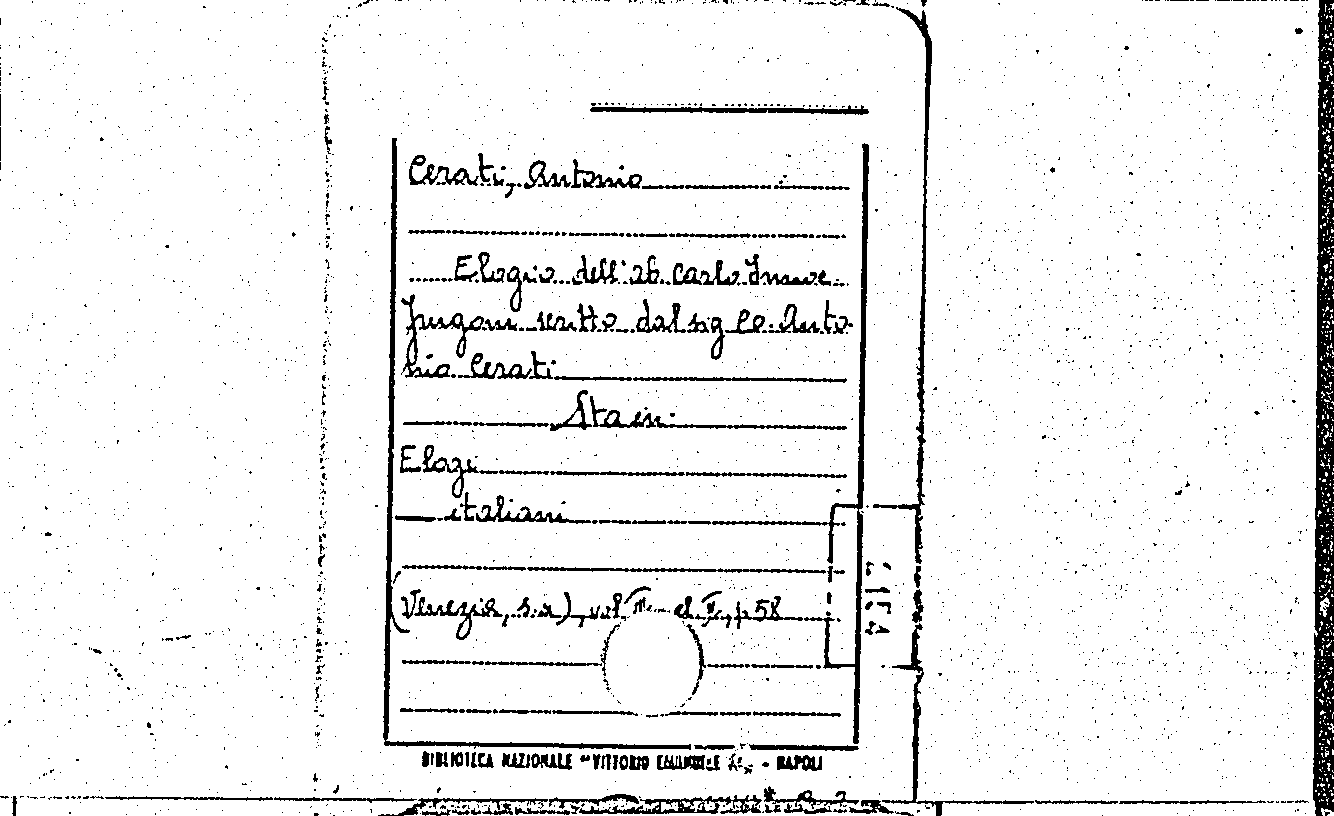 Cerati, Antonio
Elogio dell'ab. Carlo Innoc.
Frugoni scritto dal sig Co. Anto-
nio Cerati
Sta in:
Elogi
italiani
(Venezia, s.a), vol p. 58
BIBLIOTECA NAZIONALE "VITTORIO EMANUELE - NAPOLI